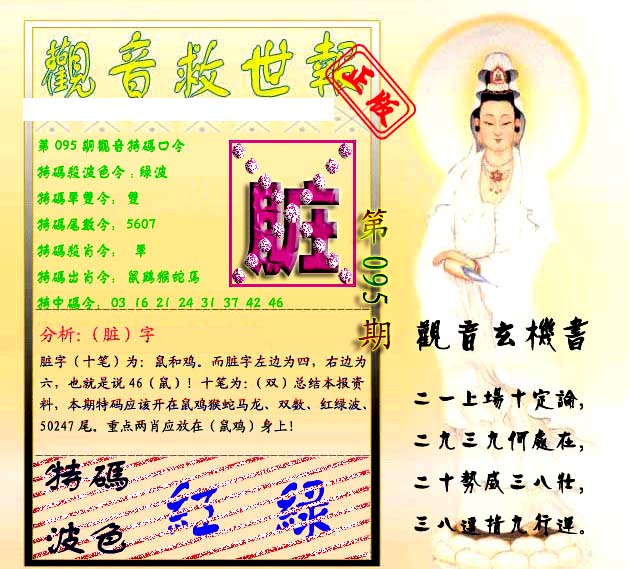 觀音救世報
正版
第095期觀音特碼口令
特碼殺波色令：綠波
特碼單雙令： 雙
特碼尾數令： 5607
特碼殺肖令： 單
特碼出肖令： 鼠鷄猴蛇馬
特中碼令： 03 16 21 24 31 37 42 46
脏
第095期
分析:（脏）字
脏字（十笔）为：鼠和鸡。而脏字左边为四，右边为
六，也就是说46（鼠）！十笔为:（双）总结本报资
料，本期特码应该开在鼠鸡猴蛇马龙、双数、红绿波、
50247尾。重点两肖应放在（鼠鸡）身上！
特碼
波色
紅 綠
觀音玄機書
二一上場十定論，
二九三九何處在，
二十勢威三八壯，
三八運指九行運。